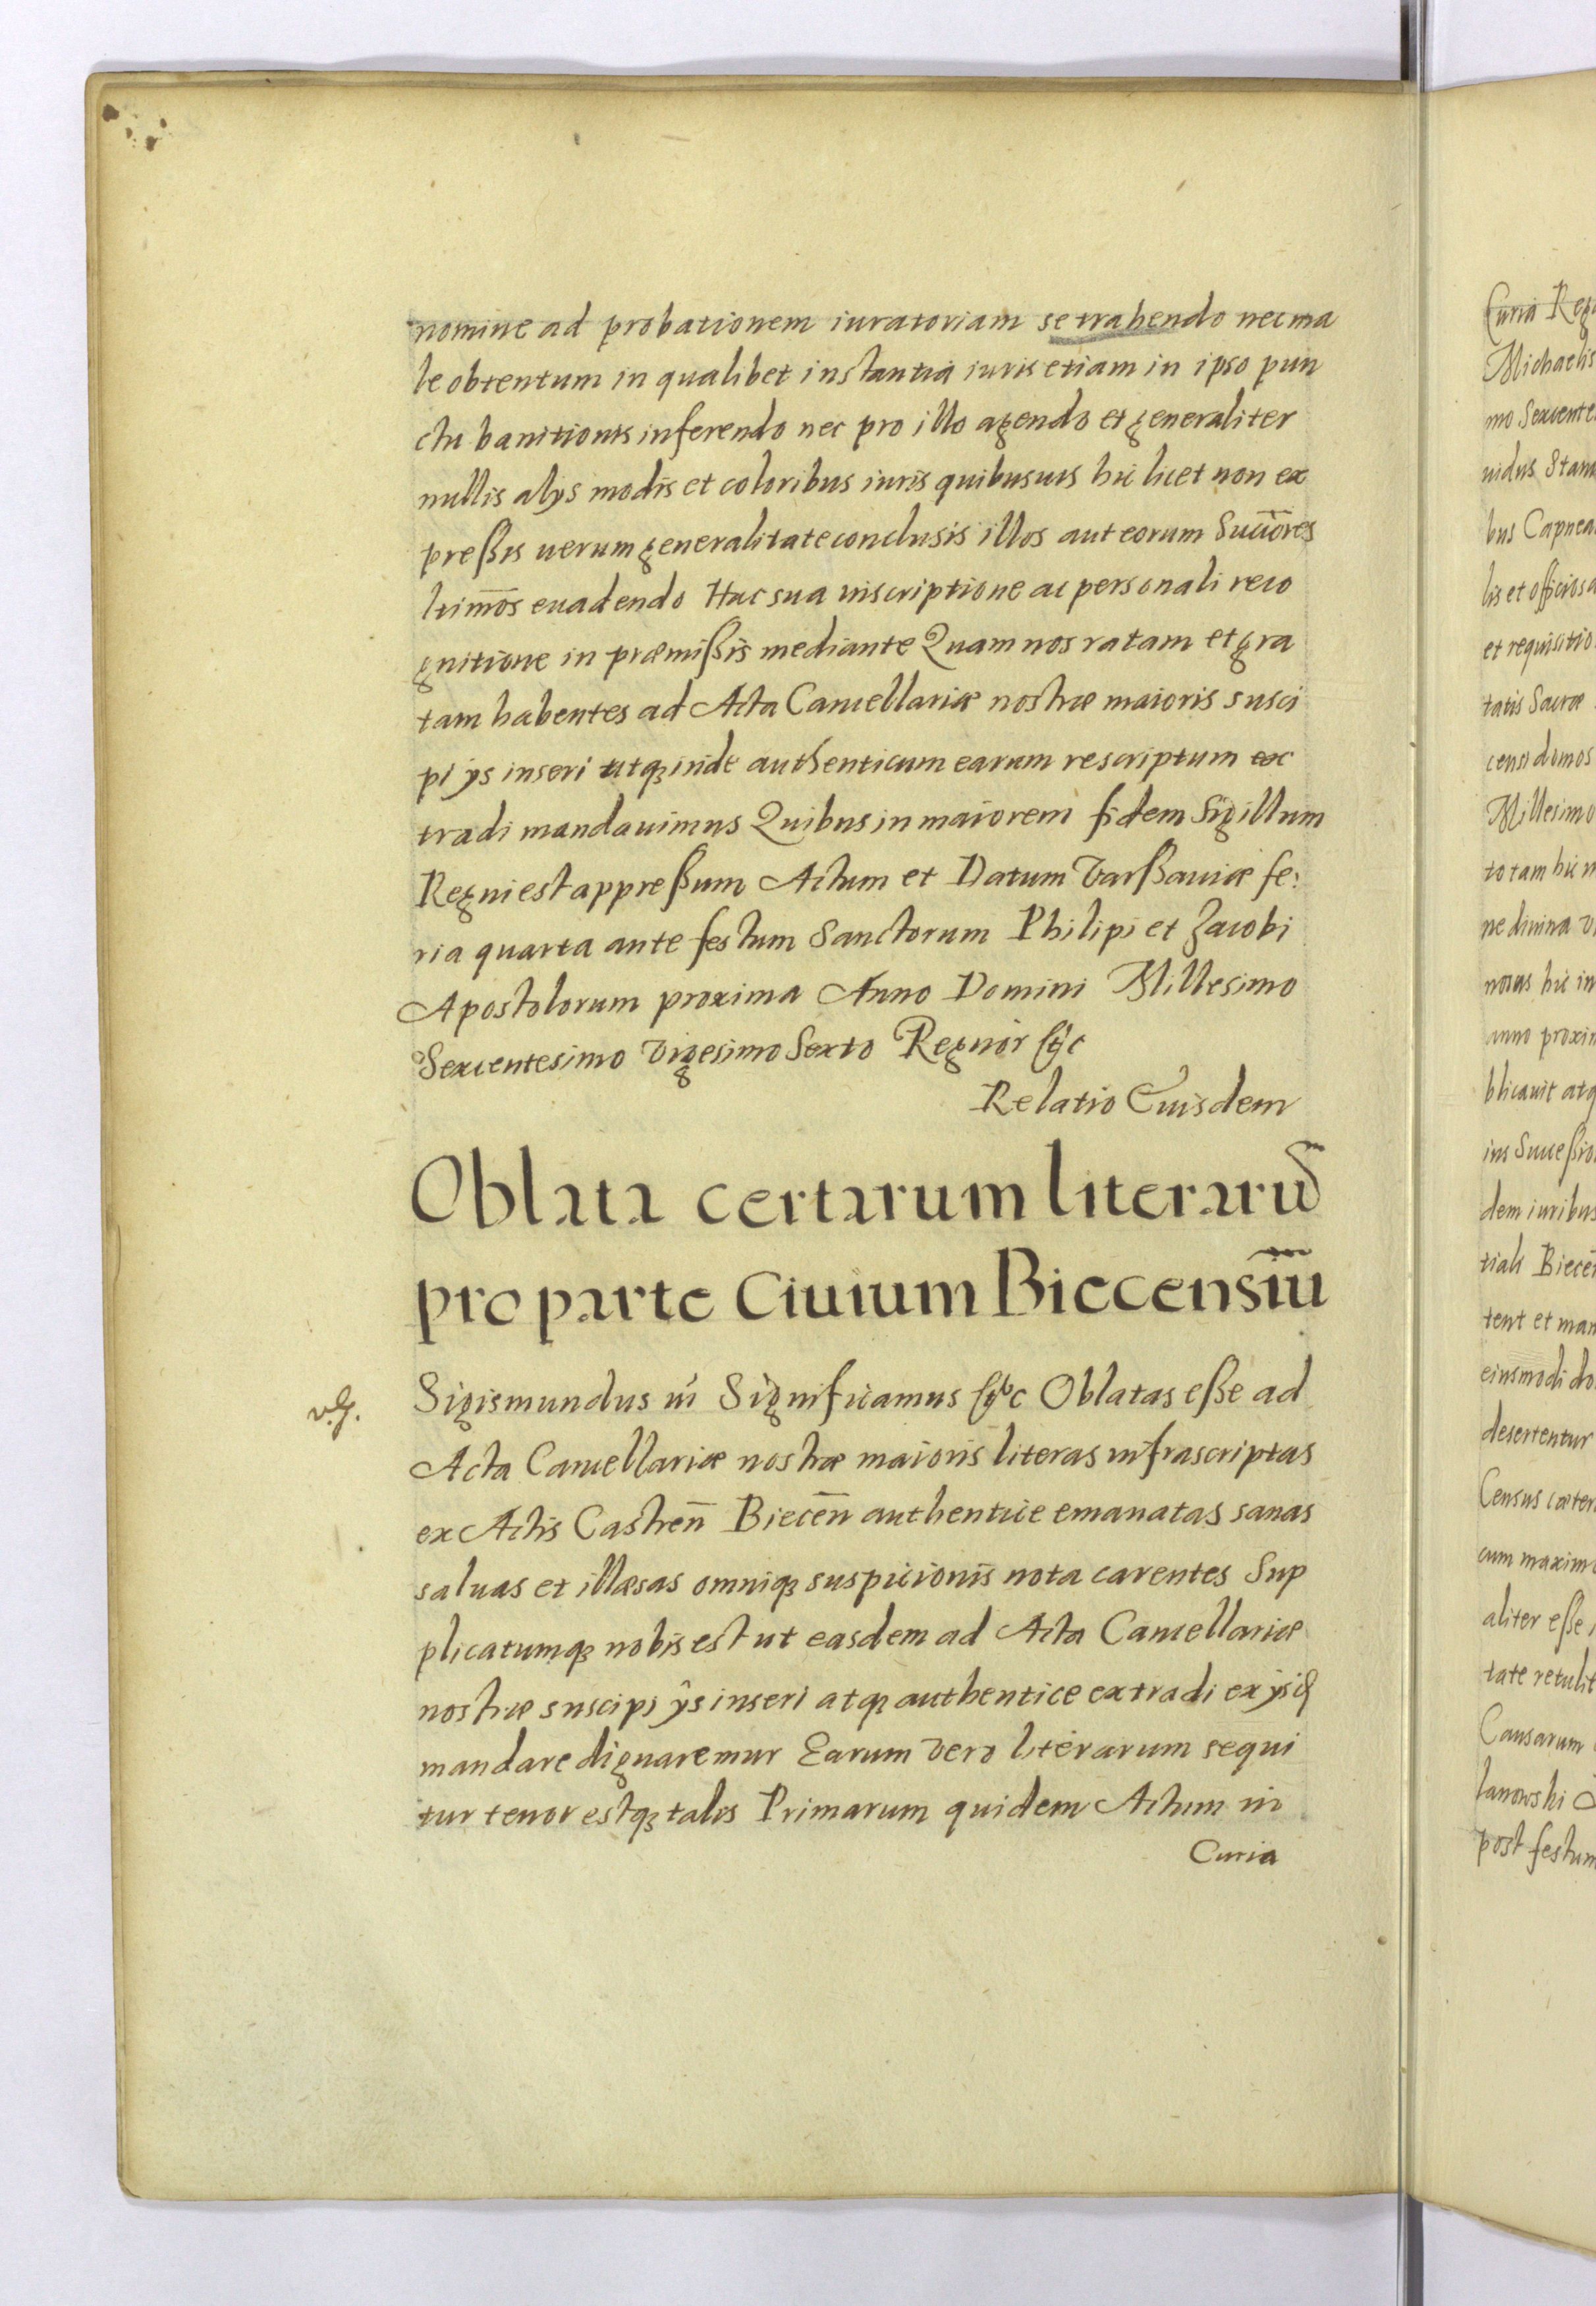 nomine ad probationem iuratoriam se trahendo nec ma
le obtentum in qualibet instantia iuris etiam in ipso pun
ctu banitionis inferendo nec pro illo agendo et generaliter
nullis alys modis et coloribus iuris quibusuis hic licet non ex
preßis uerum generalitate conclusis illos aut eorum Suc̄c̄ores
ltim̄os euadendo Hac sua inscriptione ac personali reco
gnitione in præmißis mediante Quam nos ratam et gra
tam habentes ad Acta Cancellariæ nostræ maioris susci
pi ÿs inseri atqꝫ inde authenticum earum rescriptum ex
tradi mandauimus Quibus in maiorem fidem Sigillum
Regni est appreßum Actum et Datum Varßauiæ fe:
ria quarta ante festum Sanctorum Philipi et Jacobi
Apostolorum proxima Anno Domini Millesimo
Sexcentesimo Vigesimo Sexto Regnor
Relatio Eiusdem
Oblata certarum literarū
pro parte Ciuium Biecensiū
Sigismundus iii Significamus Oblatas eße ad
Acta Cancellariæ nostræ maioris literas infrascriptas
ex Actis Castren̄ Biecen̄ authentice emanatas sanas
saluas et illæsas omniqꝫ suspicionis nota carentes Sup
plicatumqꝫ nobis est ut easdem ad Acta Cancellariæ
nostræ suscipi ÿs inseri atqꝫ authentice extradi ex ÿsqꝫ
mandare dignaremur Earum Vero literarum sequi
tur tenor estqꝫ talis Primarum quidem Actum in
Curia
Curia Reg
Michaelis
mo Sexcente
uidus Stani
bus Capnea
lis et officiosa
et requisitio
tatis Sacræ
censi domos
Millesimo
totam hic
ne diuina
noias hic in
anno proxim
blicauit atq
ius Succeßio
dem iuribus
tiali Biecen
tent et man
eiusmodi do
desertentur
Census cæter
cum maxim
aliter eße
tate retulit
Causarum
lanowski
post festum